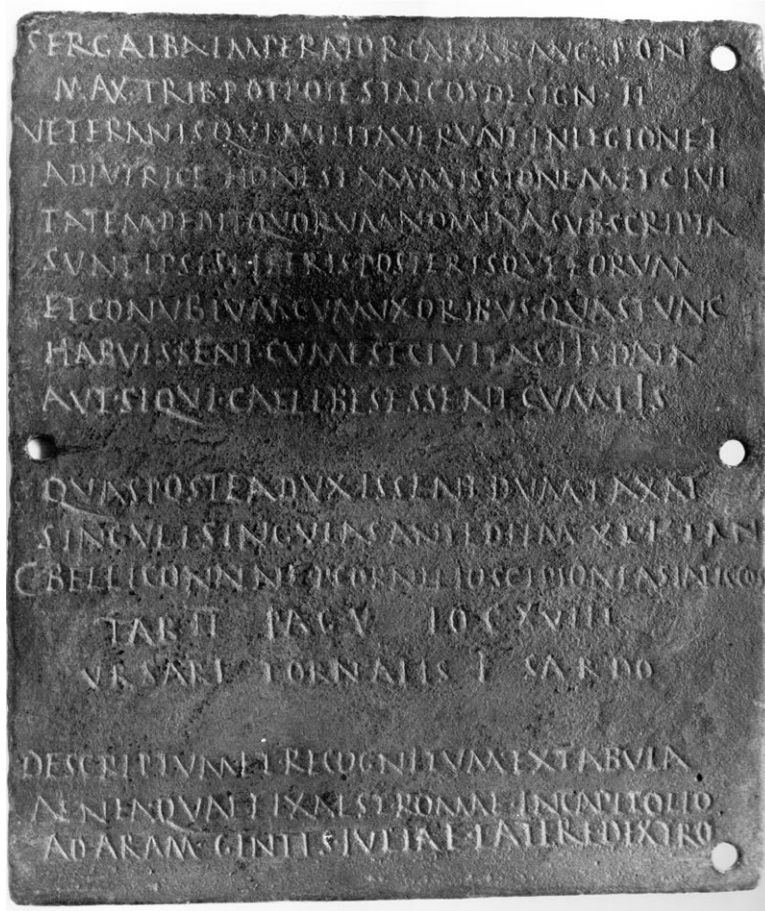 SERGALBAIMPERATORCAESARAUG·PON
MAX·TRIBPOTPOTESTATCOSDESIGN·II
VETERANISQUIMILITAVERUNTINLEGIONEI
ADIUTRICE HONESTAMMISSIONEMETCIVI
TATEMDEDITQUORUMNOMINASUBSCRIPTA
SUNTIPSISLIBERISPOSTERISQUEEORUM
ETCONUBIUMCUMUXORIBUSQUASTUNC
HABUISSENT·CUMESTCIVITASIISDATA
AUT·SIQUI·CAELIBESESSENTCUMIIS
QUASPOSTEADUXISSENTDUMTAXAT
SINGULISINGULASANTEDIEM XI K IAN
CBELLICONATALEPCORNELIOSCIPIONEASIATICOCOS
TAB II PAG V LOC XVIII
URSARI TORNALIS F SARDO
DESCRIPTUMETRECOGNITUMEXTABULA
AENEAQUAEFIXAESTROMAE·INCAPITOLIO
ADARAM·GENTISIULIAE·LATEREDEXTRO